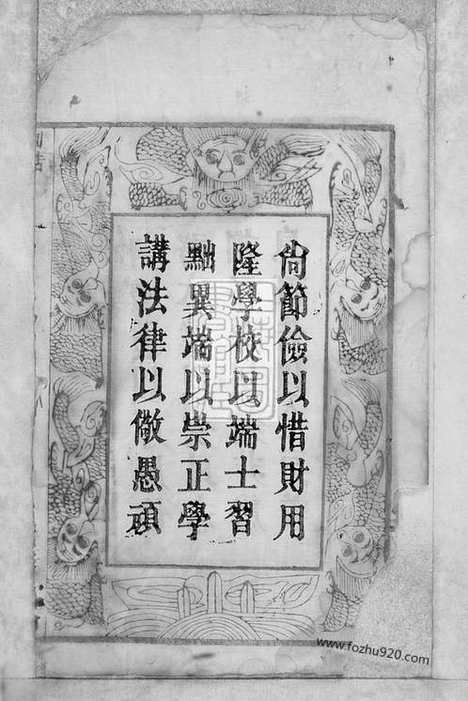 尙節儉以惜財用
隆學校以端士習
黜異端以崇正學
講法律以儆愚頑
www.fozhu920.com